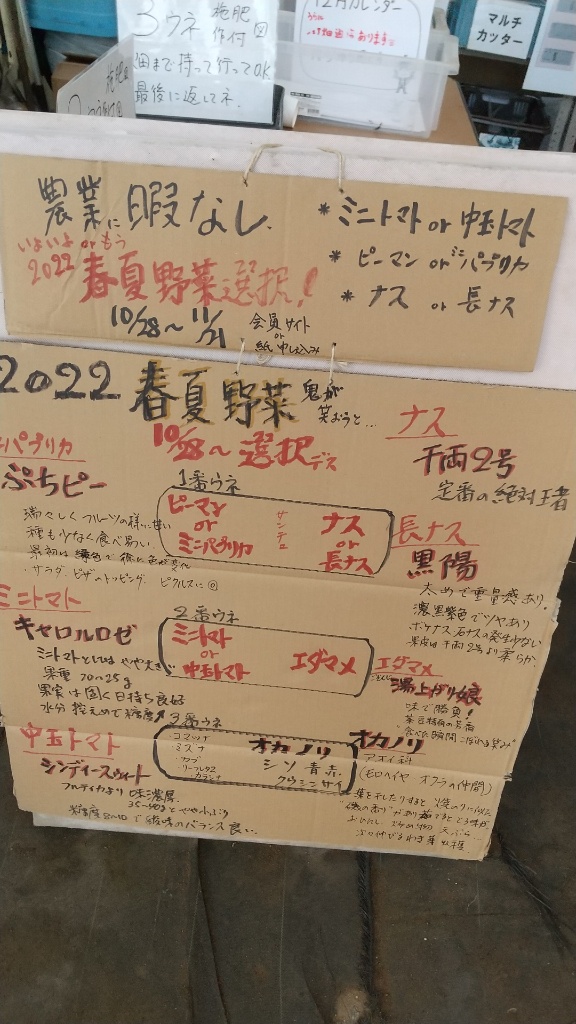 3ウネ 施肥
作付図
畑まで持って行ってOK
最後に返してネ.
施肥
12月カレンダー
マルチ
カッター
農業に暇なし.
いよいよ or もう
2022 春夏野菜選択!
10/28〜11/21
会員サイト
or
紙申し込み
* ミニトマト or 中玉トマト
* ピーマン or ミニパプリカ
* ナス or 長ナス
2022 春夏野菜 鬼が
笑おうと…
10/28〜選択デス
パプリカ
ぷちピー
瑞々しくフルーツの様に甘い
種も少なく食べ易い
サラダ、ピザのトッピング、ピクルスに◎
ミニトマト
キャロルロゼ
ミニトマトとしてはやや大きい
果重 20〜25g
果実は固く日持ち良好
水分控えめで糖度↑
中玉トマト
シンディースウィート
フルティカより味濃厚.
35〜40gとやや小ぶり
で酸味のバランス良い.
1番ウネ
ピーマン
or
ミニパプリカ
サンチュ
ナス
or
長ナス
2番ウネ
ミニトマト
or
中玉トマト
エダマメ
3番ウネ
・コマツナ
・ミズナ
・カブ
・リーフレタス
オカノリ
シソ 青赤
クウシンサイ
ナス
千両2号
定番の絶対王者
長ナス
黒陽
太めで重量感あり.
濃黒紫色でツヤあり
ボケナス 石ナスの発生少ない
果皮は千両2号より柔らか.
エダマメ
湯上がり娘
味で勝負!
茶豆特有の芳香
食べた瞬間 こぼれる笑み
オカノリ
アオイ科
(モロヘイヤ オクラの仲間)